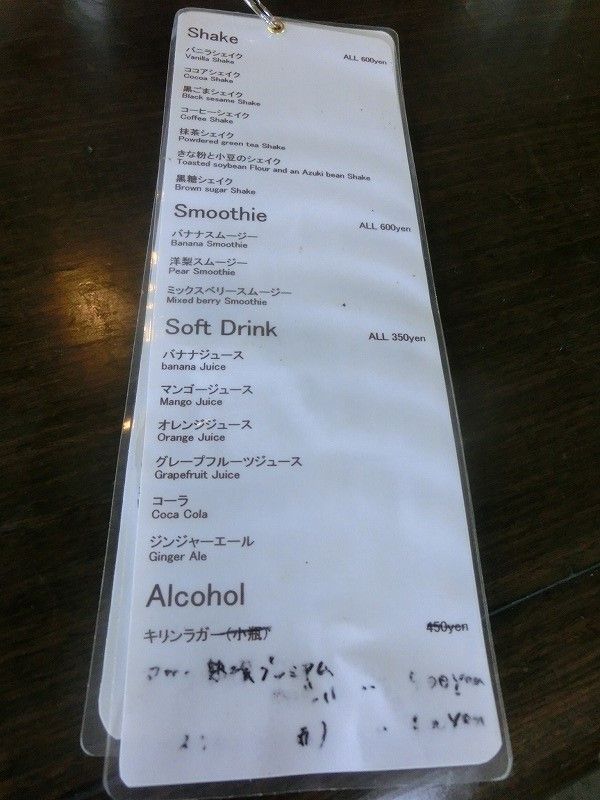 Shake
ALL 600yen
バニラシェイク
Vanilla Shake
ココアシェイク
Cocoa Shake
黒ごまシェイク
Black sesame Shake
コーヒーシェイク
Coffee Shake
抹茶シェイク
Powdered green tea Shake
きな粉と小豆のシェイク
Toasted soybean Flour and an Azuki bean Shake
黒糖シェイク
Brown sugar Shake
Smoothie
ALL 600yen
バナナスムージー
Banana Smoothie
洋梨スムージー
Pear Smoothie
ミックスベリースムージー
Mixed berry Smoothie
Soft Drink
ALL 350yen
バナナジュース
banana Juice
マンゴージュース
Mango Juice
オレンジジュース
Orange Juice
グレープフルーツジュース
Grapefruit Juice
コーラ
Coca Cola
ジンジャーエール
Ginger Ale
Alcohol
キリンラガー(小瓶) 450yen
プレミアム
yen
yen